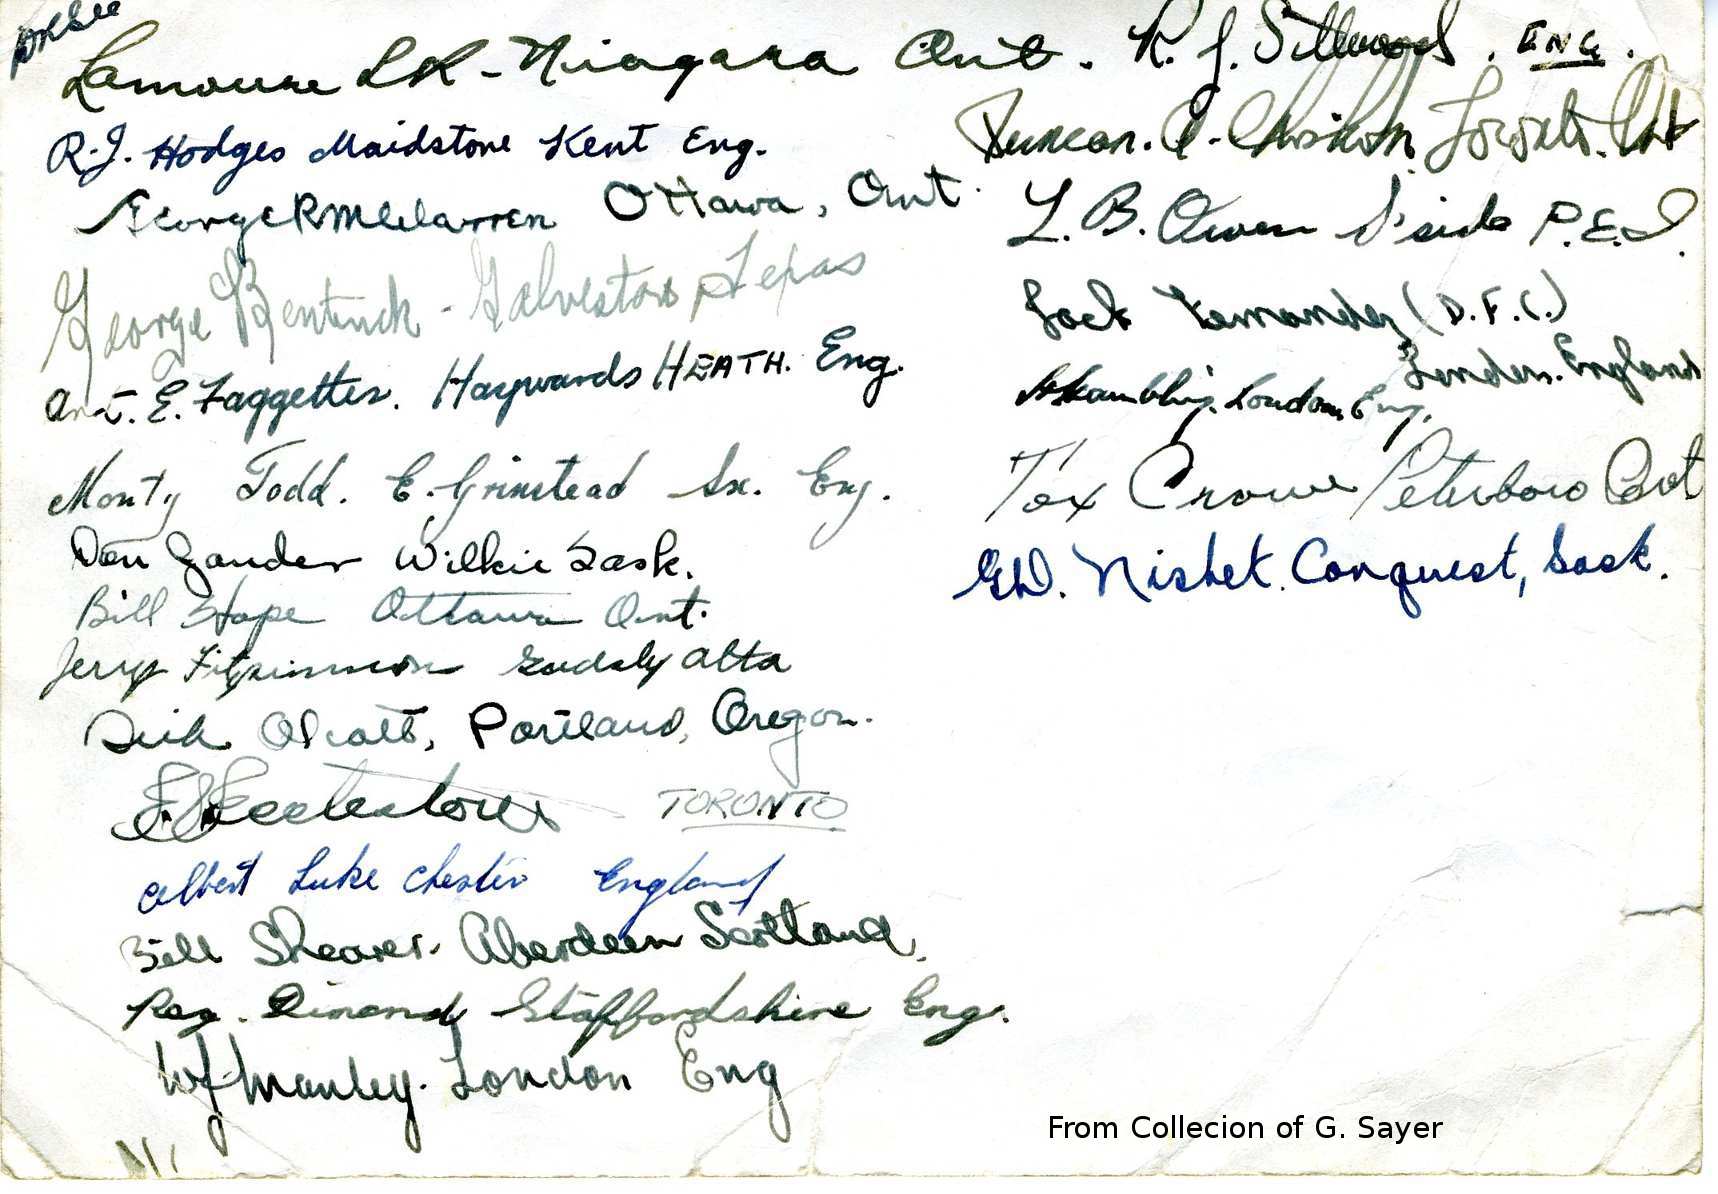 Lamoure L R - Niagara Ont. R. J. Sillwood. ENG.
R. J. Hodges Maidstone Kent Eng.
Duncan. A. Chisholm. Toronto. Ont
George R McWarren Ottawa, Ont.
L. B. Owen S'side P.E.I.
George Bentinck - Galveston Texas
Jack Fernandez (D.F.C.)
London. England
Art. E. Faggetter. Haywards HEATH. Eng.
London Eng.
Monty Todd. E. Grinstead Sx. Eng.
Tex Crowe Peterboro Ont
Don Gander Wilkie Sask.
G.D. Nisbet. Conquest, Sask.
Bill Hope Ottawa Ont.
Jerry Fitzsimmon Alta
Dick Olcott, Portland, Oregon.
Ecclestone TORONTO
Albert Luke Chester England
Bill Shearer. Aberdeen Scotland,
Reg. Dimond Staffordshire Eng.
W J Manley. London Eng
From Collecion of G. Sayer